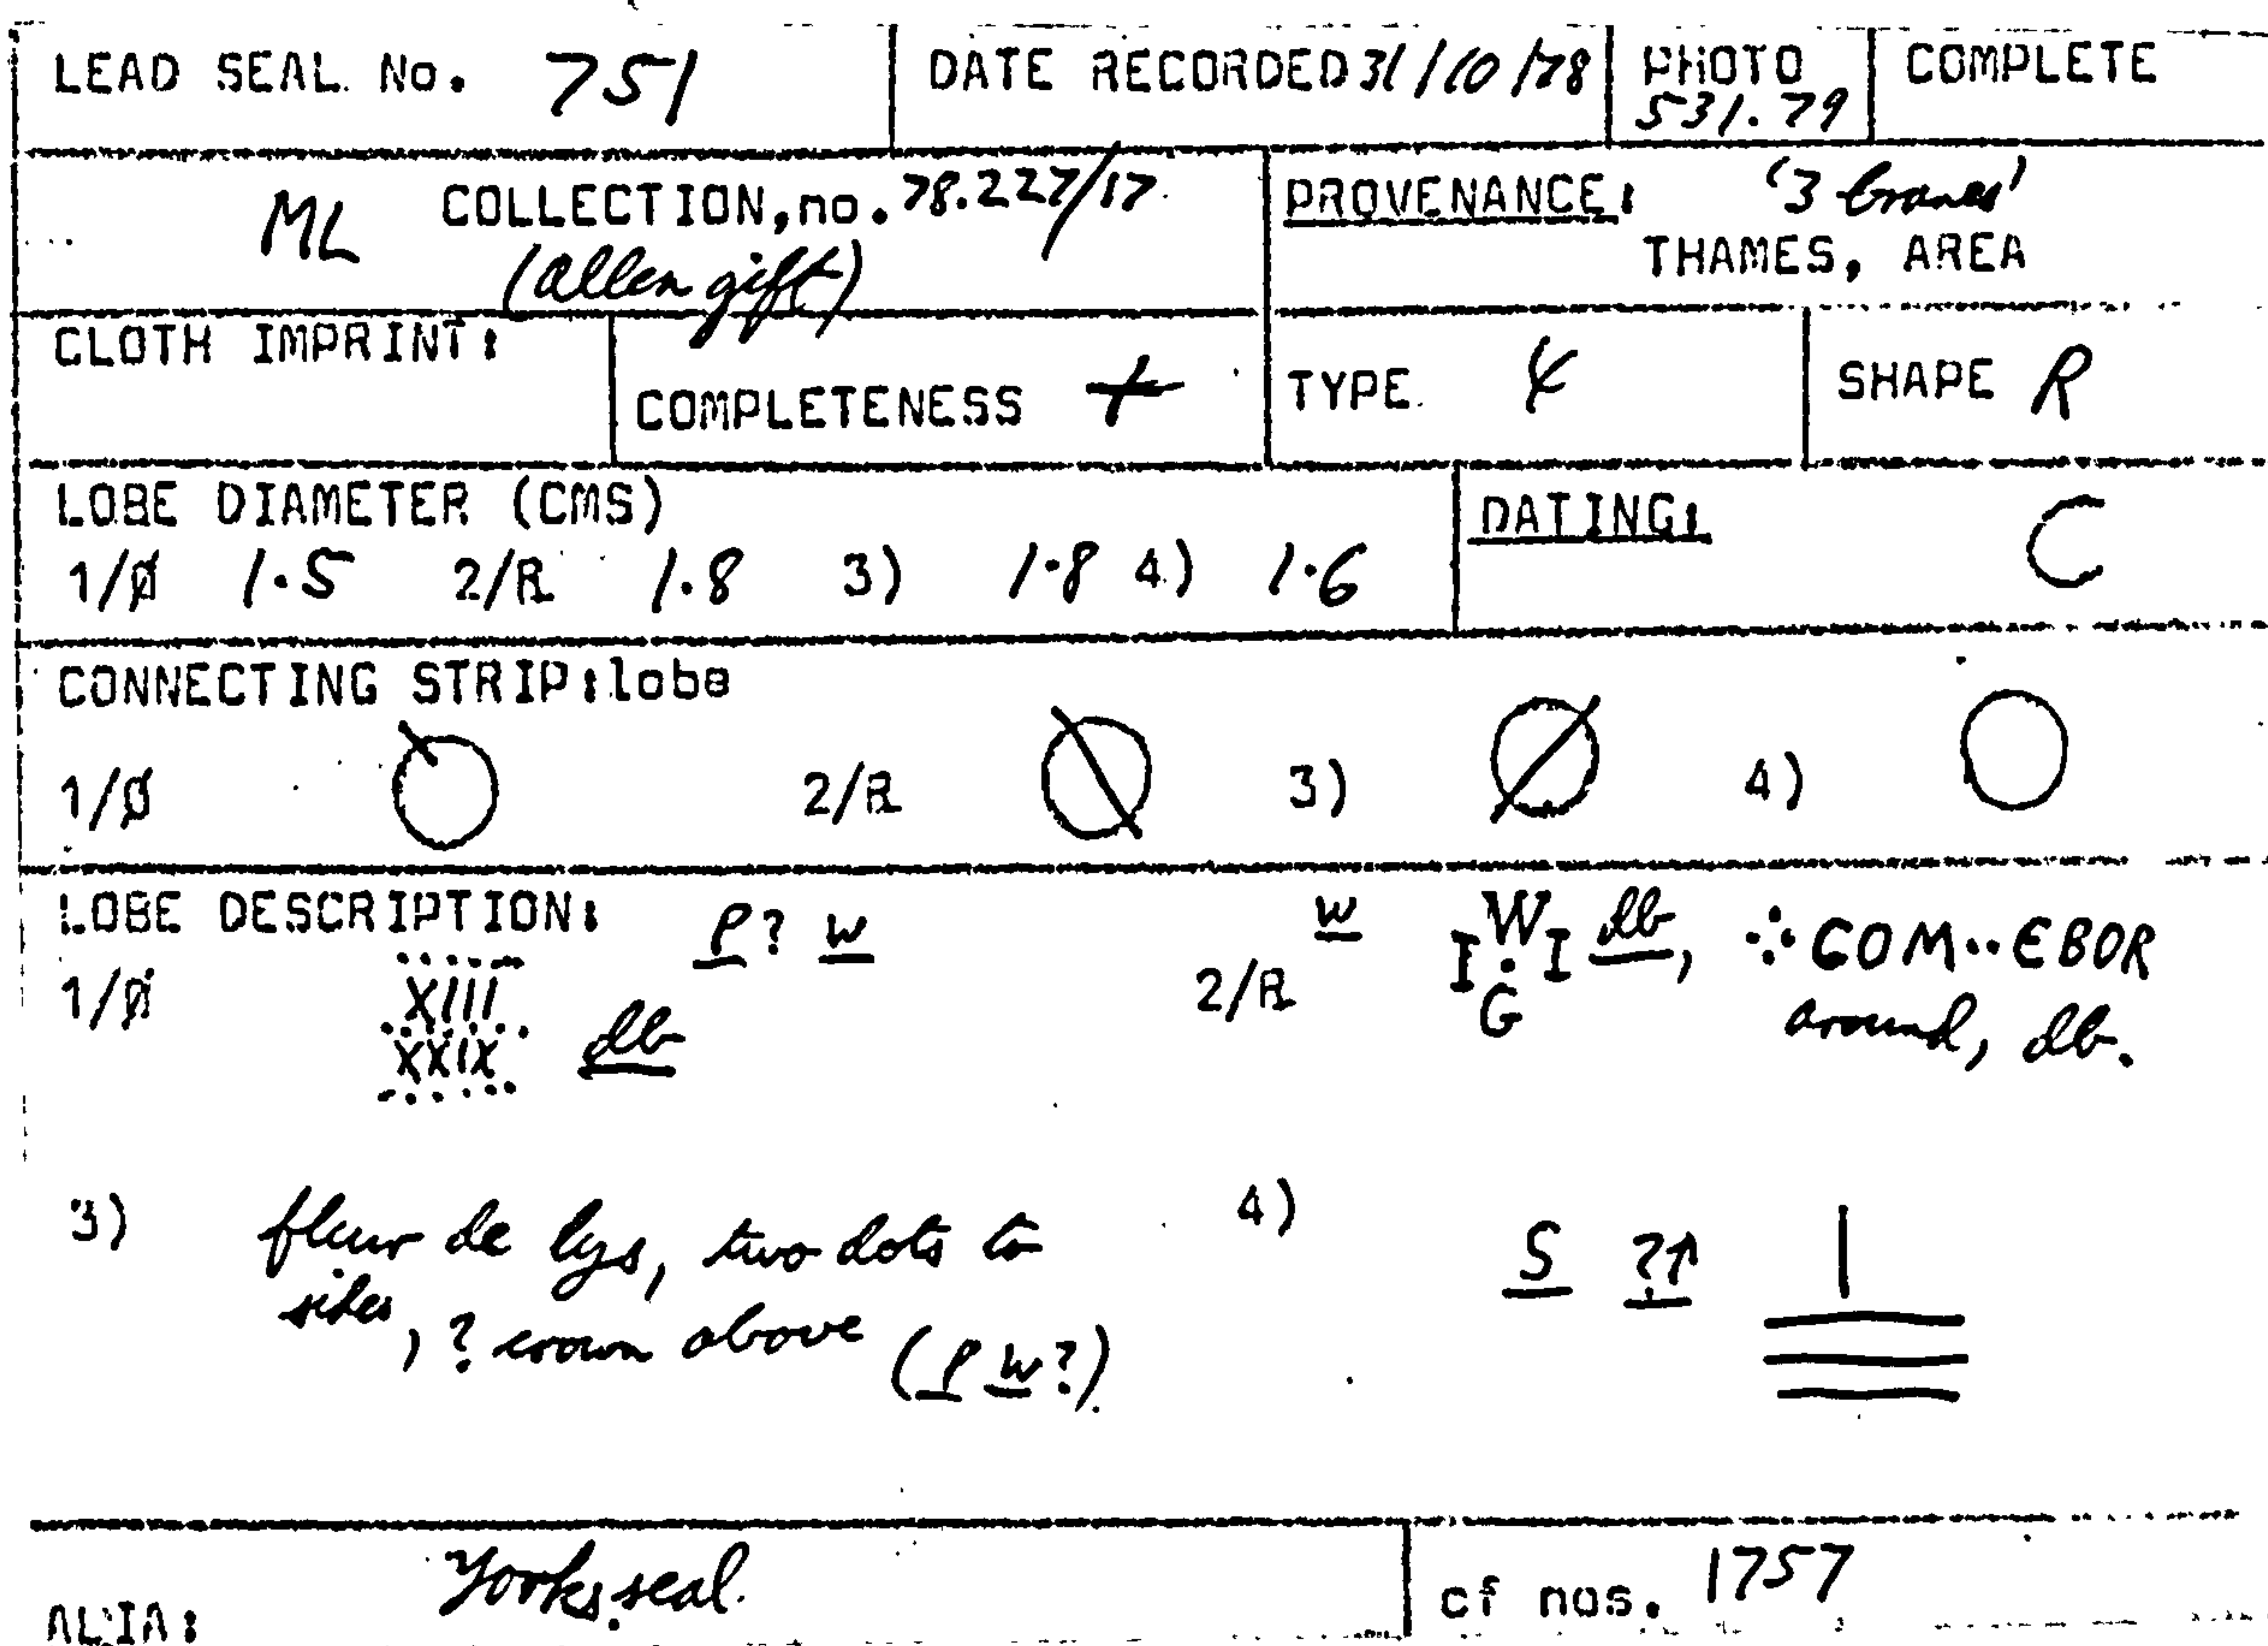 LEAD SEAL No. 751 DATE RECORDED 31/10/78 PHOTO 531.79 COMPLETE
ML COLLECTION, no. 78.227/17 (Allen gift) PROVENANCE: '3 Cranes' THAMES, AREA
CLOTH IMPRINT: COMPLETENESS + TYPE 4 SHAPE R
LOBE DIAMETER (CMS) DATING: C
1/Ø 1.5 2/R 1.8 3) 1.8 4) 1.6
CONNECTING STRIP: lobe
1/Ø 2/R 3) 4)
LOBE DESCRIPTION:
1/Ø P? W
XIII
XXIX db
2/R W W I · I G db, ∴ COM·· EBOR
around, db.
3) fleur de lys, two dots to
sides, ? crown above (P W?)
4) S ?↑ I
ALIA: Yorks. seal. cf nos. 1757